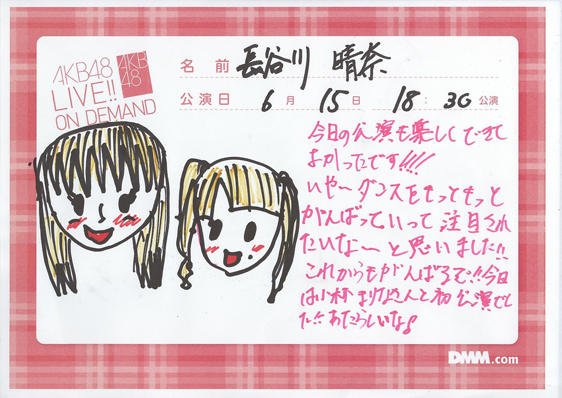 AKB48
LIVE!!
ON DEMAND
AKB
48
名前 長谷川 晴奈
公演日 6月 15日 18:30公演
今日の公演も楽しくできて
よかったです!!!!
いや〜ダンスをもっともっと
がんばっていって注目され
たいな〜と思いました!!
これからもがんばるで!!今日
は小林まりなさんと初公演でし
た!!あたらしいな♪
DMM.com